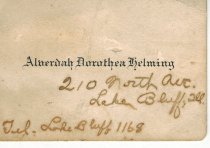 Alverdah Dorothea Helming
210 North Ave.
Lake Bluff, Ill.
Tel. Lake Bluff 1168